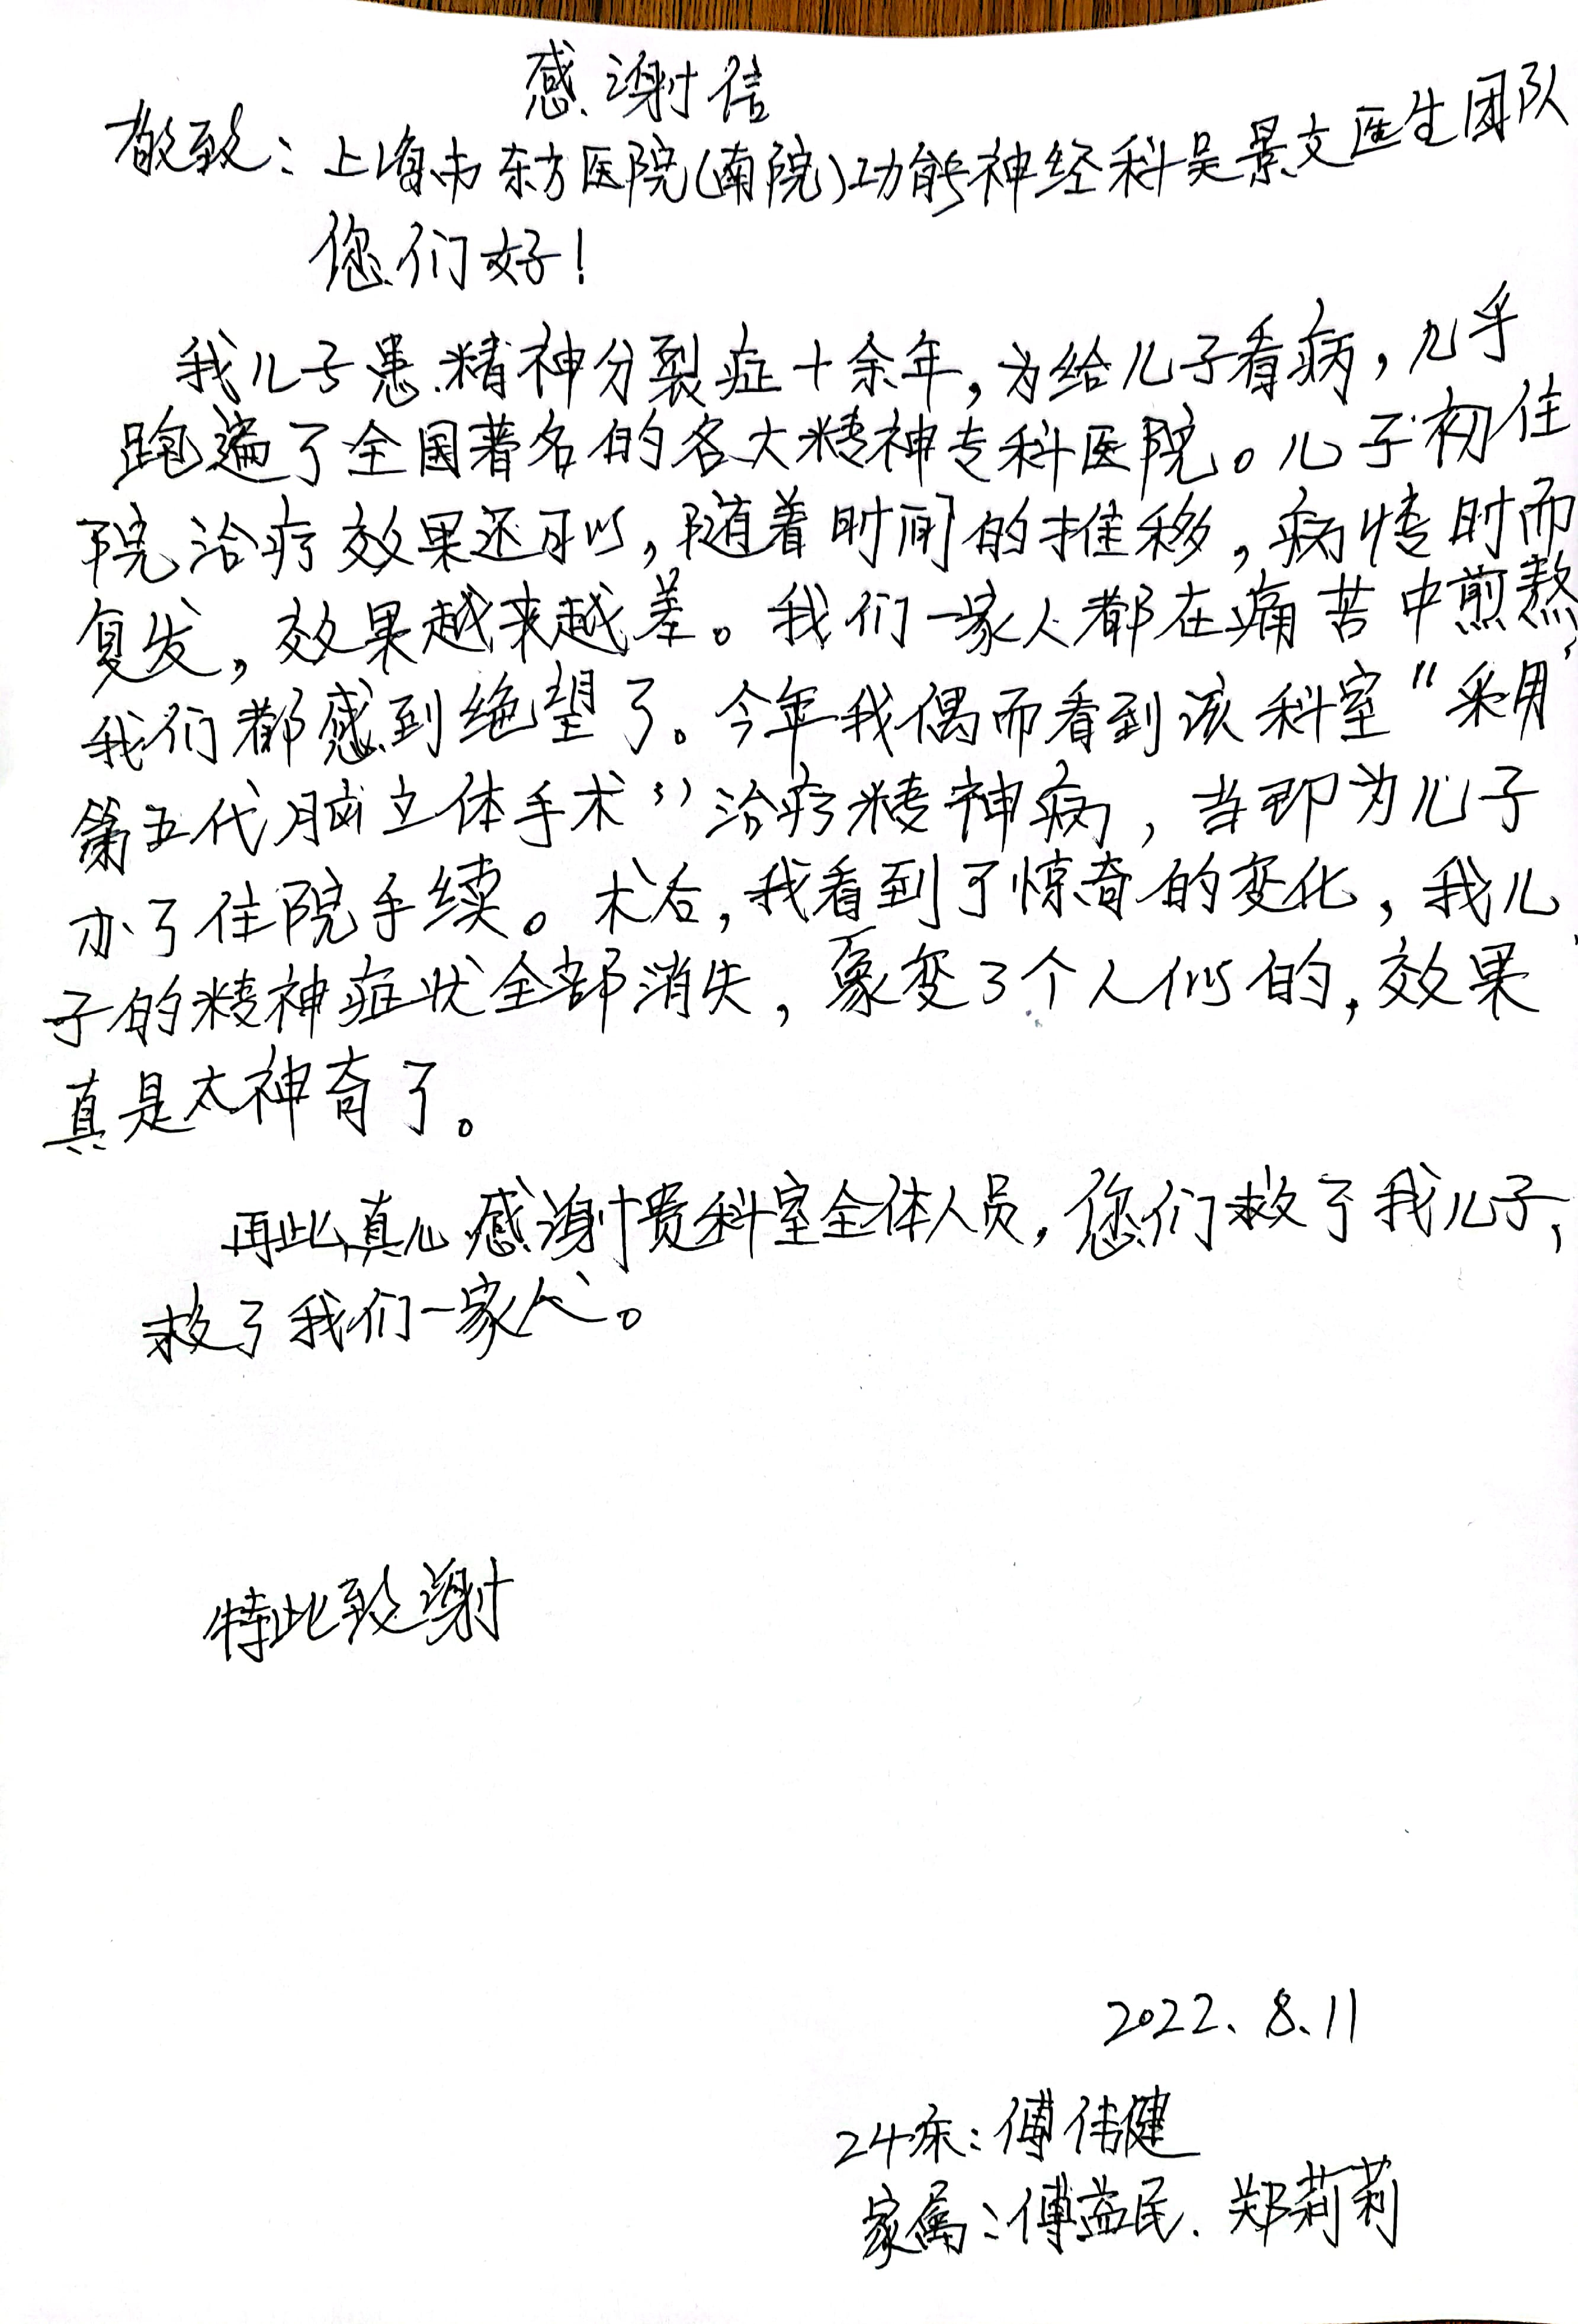 感谢信
敬致：上海市东方医院(南院)功能神经科吴景文医生团队
您们好！
我儿子患精神分裂症十余年，为给儿子看病，几乎
跑遍了全国著名的各大精神专科医院。儿子初住
院治疗效果还可以，随着时间的推移，病情时而
复发，效果越来越差。我们一家人都在痛苦中煎熬，
我们都感到绝望了。今年我偶而看到该科室“采用
第五代脑立体手术”治疗精神病，当即为儿子
办了住院手续。术后，我看到了惊奇的变化，我儿
子的精神症状全部消失，象变了个人似的，效果
真是太神奇了。
再此真心感谢贵科室全体人员，您们救了我儿子，
救了我们一家人。
特此致谢
2022.8.11
24床：傅伟健
家属：傅益民.郑莉莉